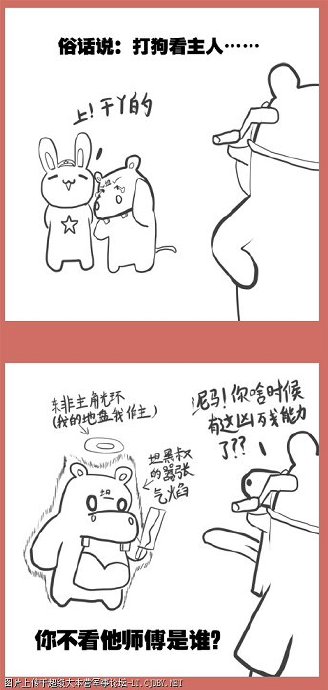 俗话说：打狗看主人……
上！干丫的
非主角光环
(我的地盘我作主)
坦黑叔
的嚣张
气焰
坦
泥马！你啥时候
有这凶残能力
了??
你不看他师傅是谁？
图片上传于超级大本营军事论坛-LT.CJDBY.NET